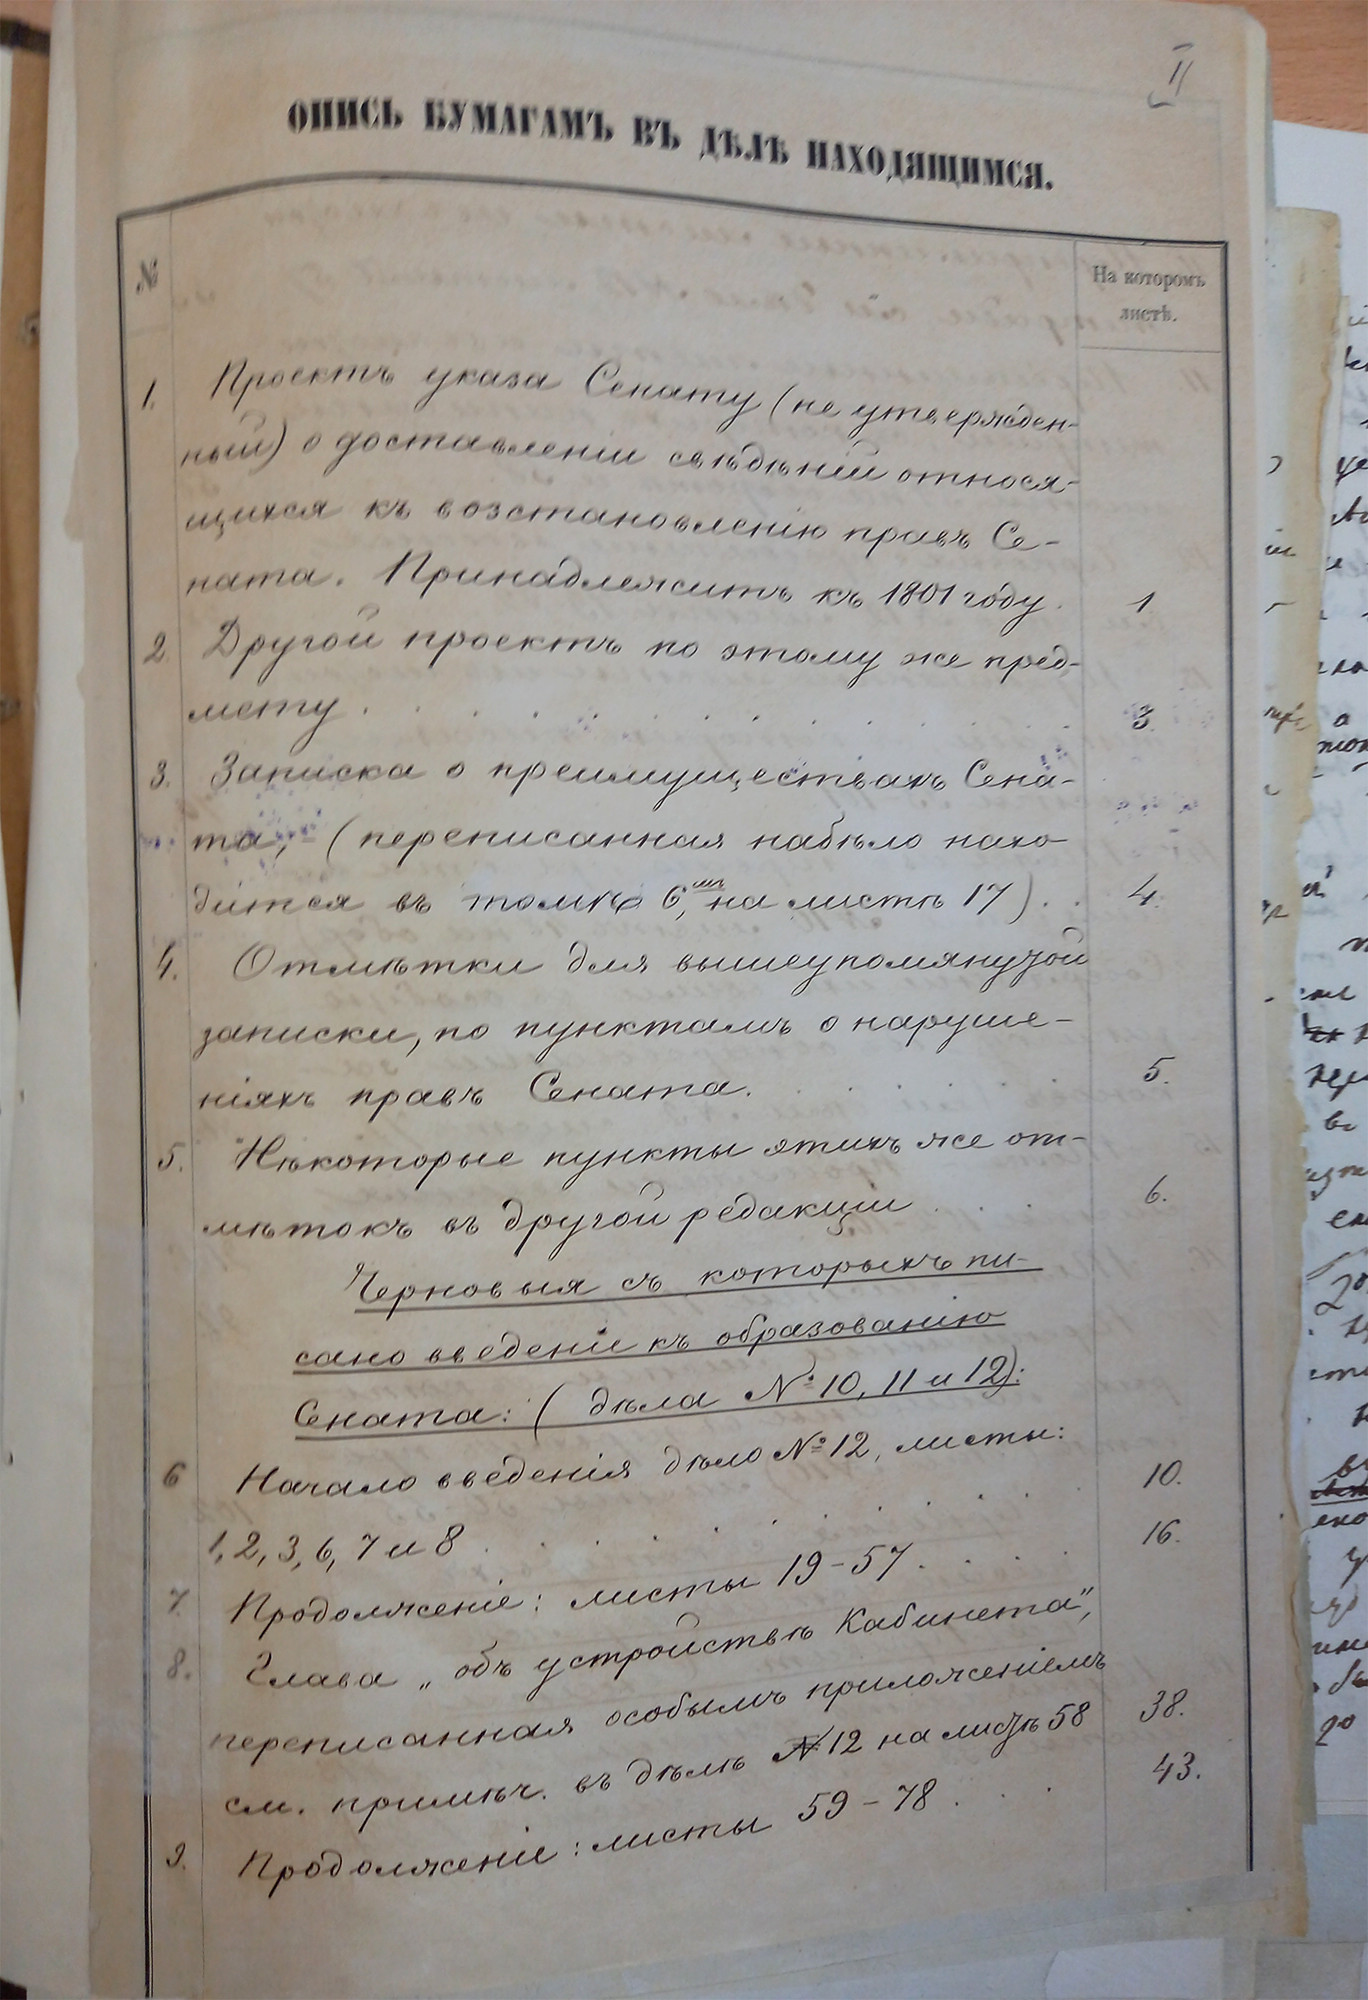 II
ОПИСЬ БУМАГАМЪ ВЪ ДѢЛѢ НАХОДЯЩИМСЯ.
№
На которомъ
листѣ.
1. Проектъ указа Сенату (не утвержден-
ный) о доставленіи свѣдѣній относя-
щихся къ возстановленію правъ Се-
ната. Принадлежитъ къ 1801 году. 1
2. Другой проектъ по этому же пред-
мету . . . . . . . . . 3.
3. Записка о преимуществахъ Сена-
та, (переписанная набѣло нахо-
дится въ томѣ 6, на листѣ 17) . . 4.
4. Отмѣтки для вышеупомянутой
записки, по пунктамъ о наруше-
ніяхъ правъ Сената. . . . . . 5.
5. Нѣкоторые пункты этихъ же от-
мѣтокъ въ другой редакціи . . . 6.
Черновыя съ которыхъ пи-
сано введеніе къ образованію
Сената: (дѣла № 10, 11 и 12):
6 Начало введенія дѣло № 12, листы:
1, 2, 3, 6, 7 и 8 . . . . . . . . 10.
7. Продолженіе: листы 19-57 . . . . 16.
8. Глава „объ устройствѣ Кабинета",
переписанная особымъ приложеніемъ
см. примѣч. въ дѣлѣ № 12 на листѣ 58 38.
9. Продолженіе: листы 59-78 . . . 43.